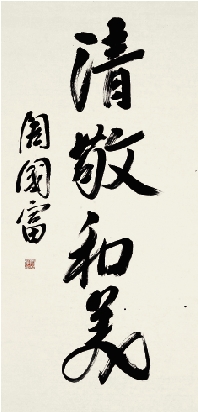 清敬和美
周國富